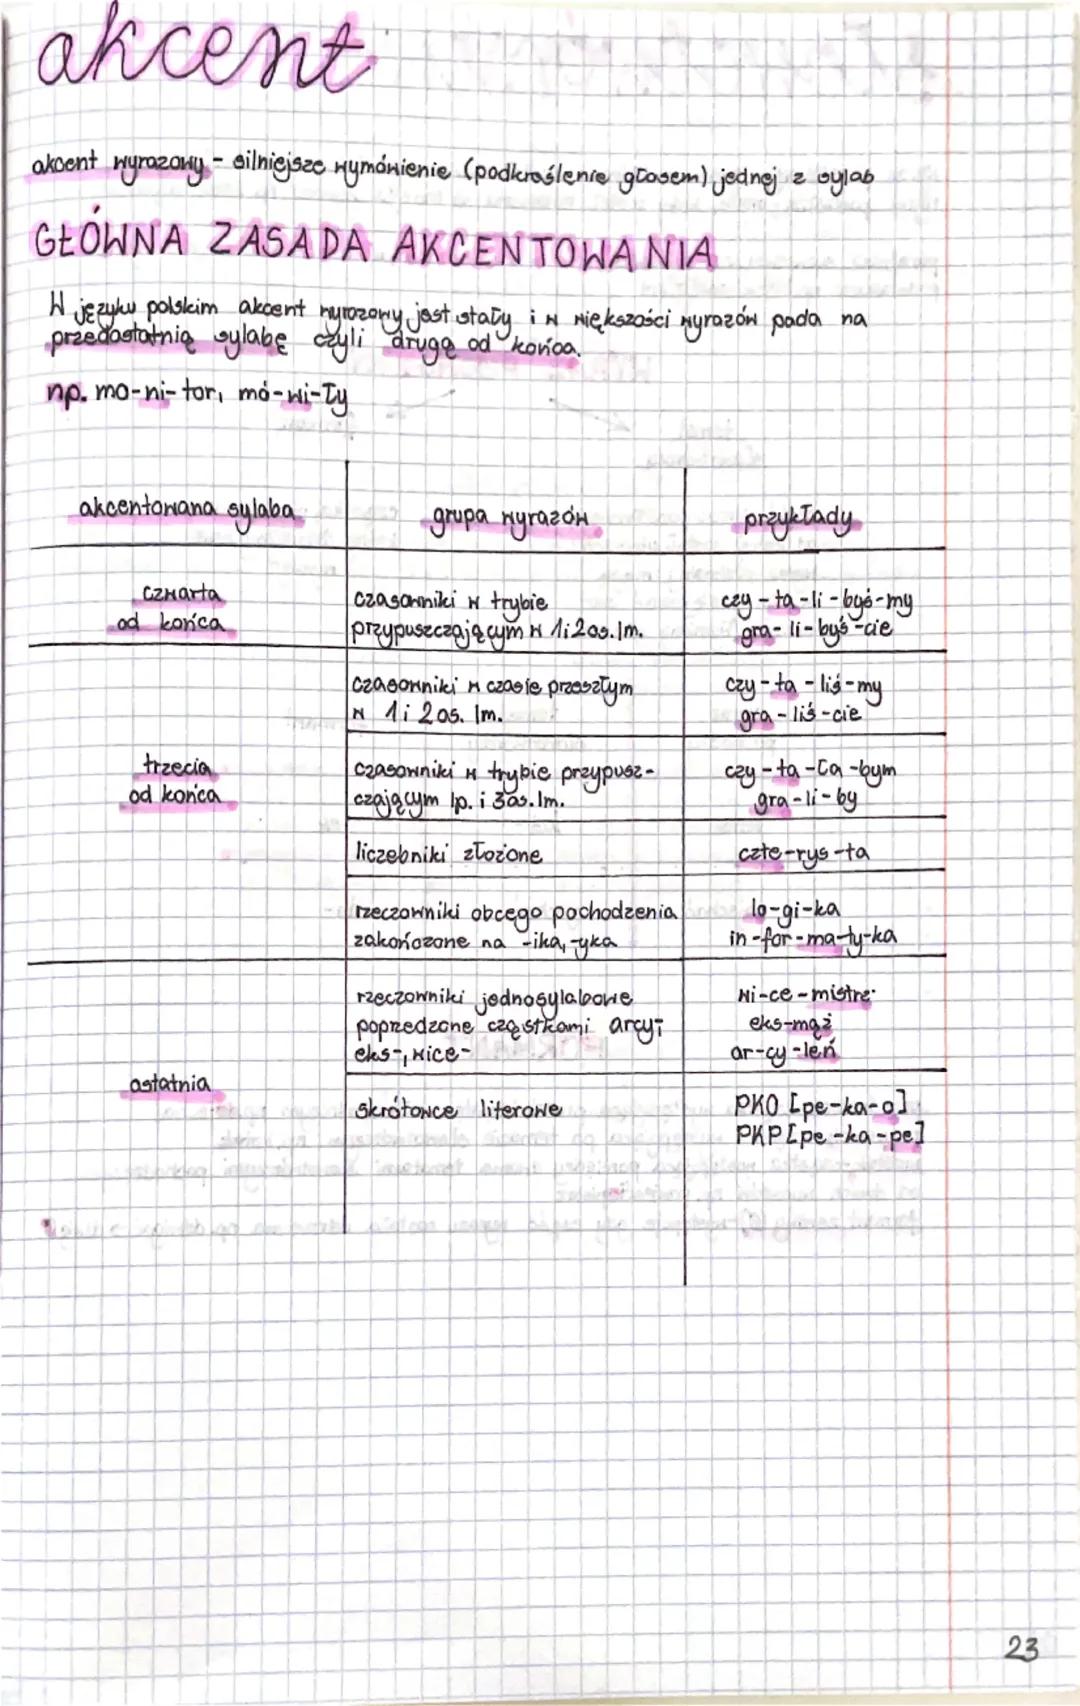 akcent
akcent wyrazowy - silniejsze wymówienie (podkreślenie głosem) jednej z sylab
GŁÓWNA ZASADA AKCENTOWANIA
W języku polskim akcent wyrazowy jest stały i w większości wyrazów pada na
przedostatnią sylabę czyli drugą od końca.
np. mo-ni-tor, mó-wi-ły
akcentowana sylaba grupa wyrazów przykłady
czwarta
od końca
czasowniki w trybie
przypuszczającym w 1i2os.lm.
czy-ta-li-byś-my
gra-li-byś-cie
trzecia
od końca
czasowniki w czasie przeszłym
w 1i 2os. lm.
czy-ta-liś-my
gra-liś-cie
czasowniki w trybie przypusz-
czającym lp. i 3os.lm.
czy-ta-ła-bym
gra-li-by
liczebniki złożone
czte-rys-ta
rzeczowniki obcego pochodzenia
zakończone na -ika, -yka
lo-gi-ka
in-for-ma-ty-ka
ostatnia
rzeczowniki jednosylabowe
poprzedzone cząstkami arcy-,
eks-, wice-
wi-ce-mistrz
eks-mąż
ar-cy-leń
skrótowce literowe
PKO [pe-ka-o]
PKP [pe-ka-pe]
23